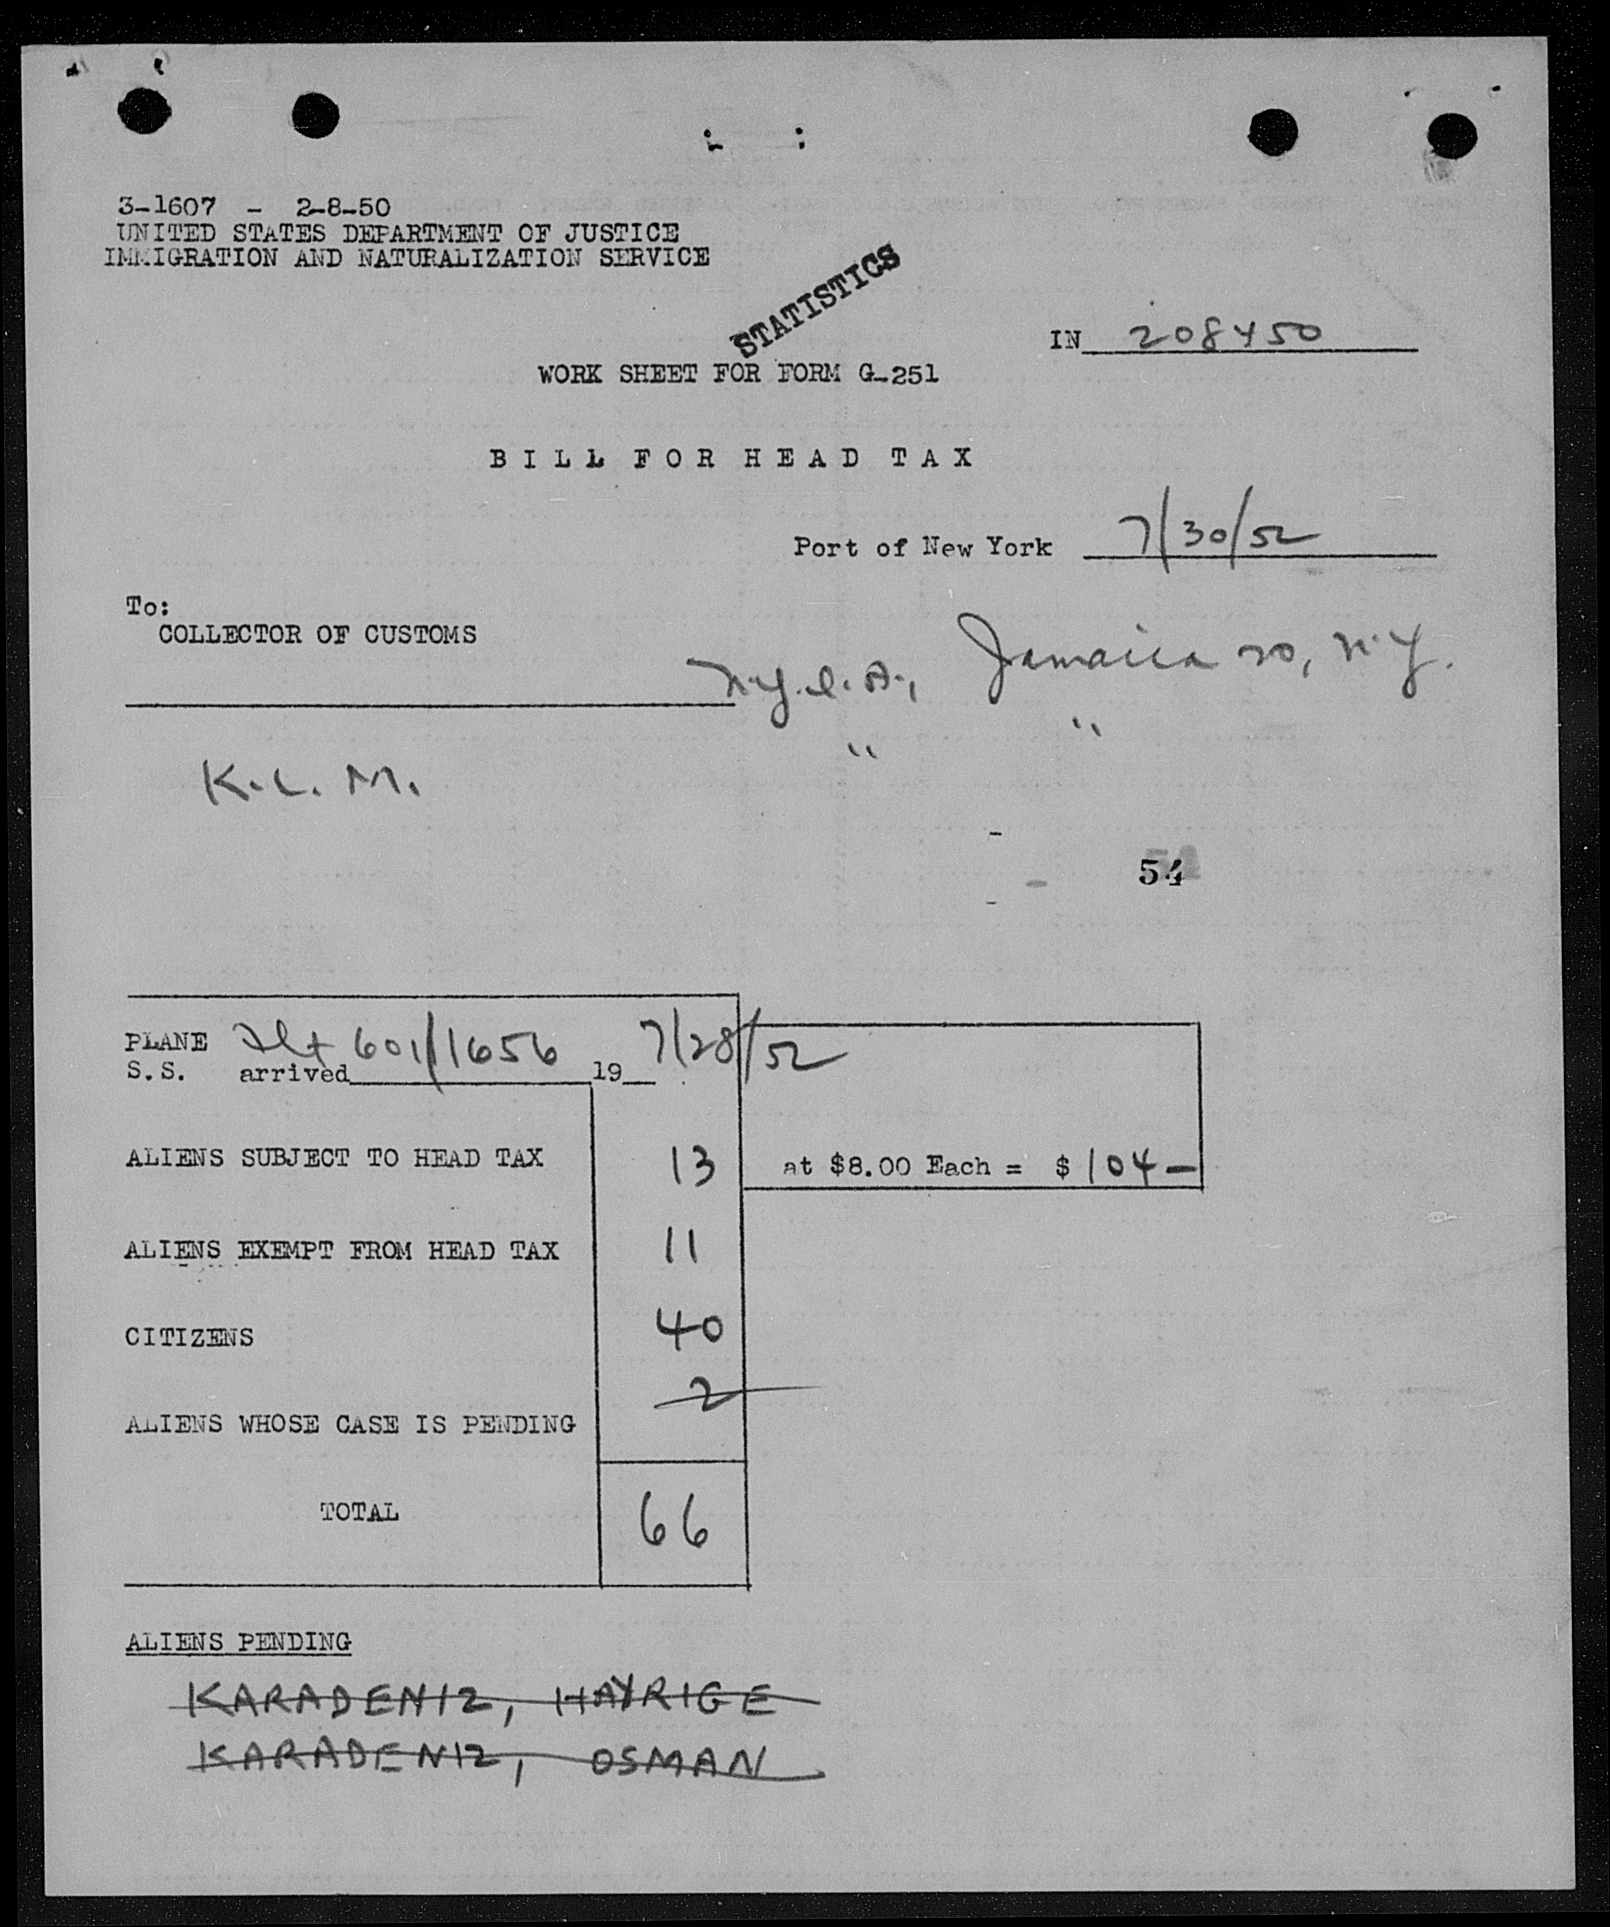 3-1607 - 2-8-50
UNITED STATES DEPARTMENT OF JUSTICE
IMMIGRATION AND NATURALIZATION SERVICE
STATISTICS
IN 208450
WORK SHEET FOR FORM G-251
BILL FOR HEAD TAX
Port of New York 7/30/52
To:
COLLECTOR OF CUSTOMS
N.Y.I.A., Jamaica 20, N.Y.
" "
K.L.M.
54
PLANE Flt 601/1656 7/28/52
S.S. arrived 19
ALIENS SUBJECT TO HEAD TAX 13 at $8.00 Each = $104-
ALIENS EXEMPT FROM HEAD TAX 11
CITIZENS 40
2
ALIENS WHOSE CASE IS PENDING
TOTAL 66
ALIENS PENDING
KARADENIZ, HAYRIGE
KARADENIZ, OSMAN